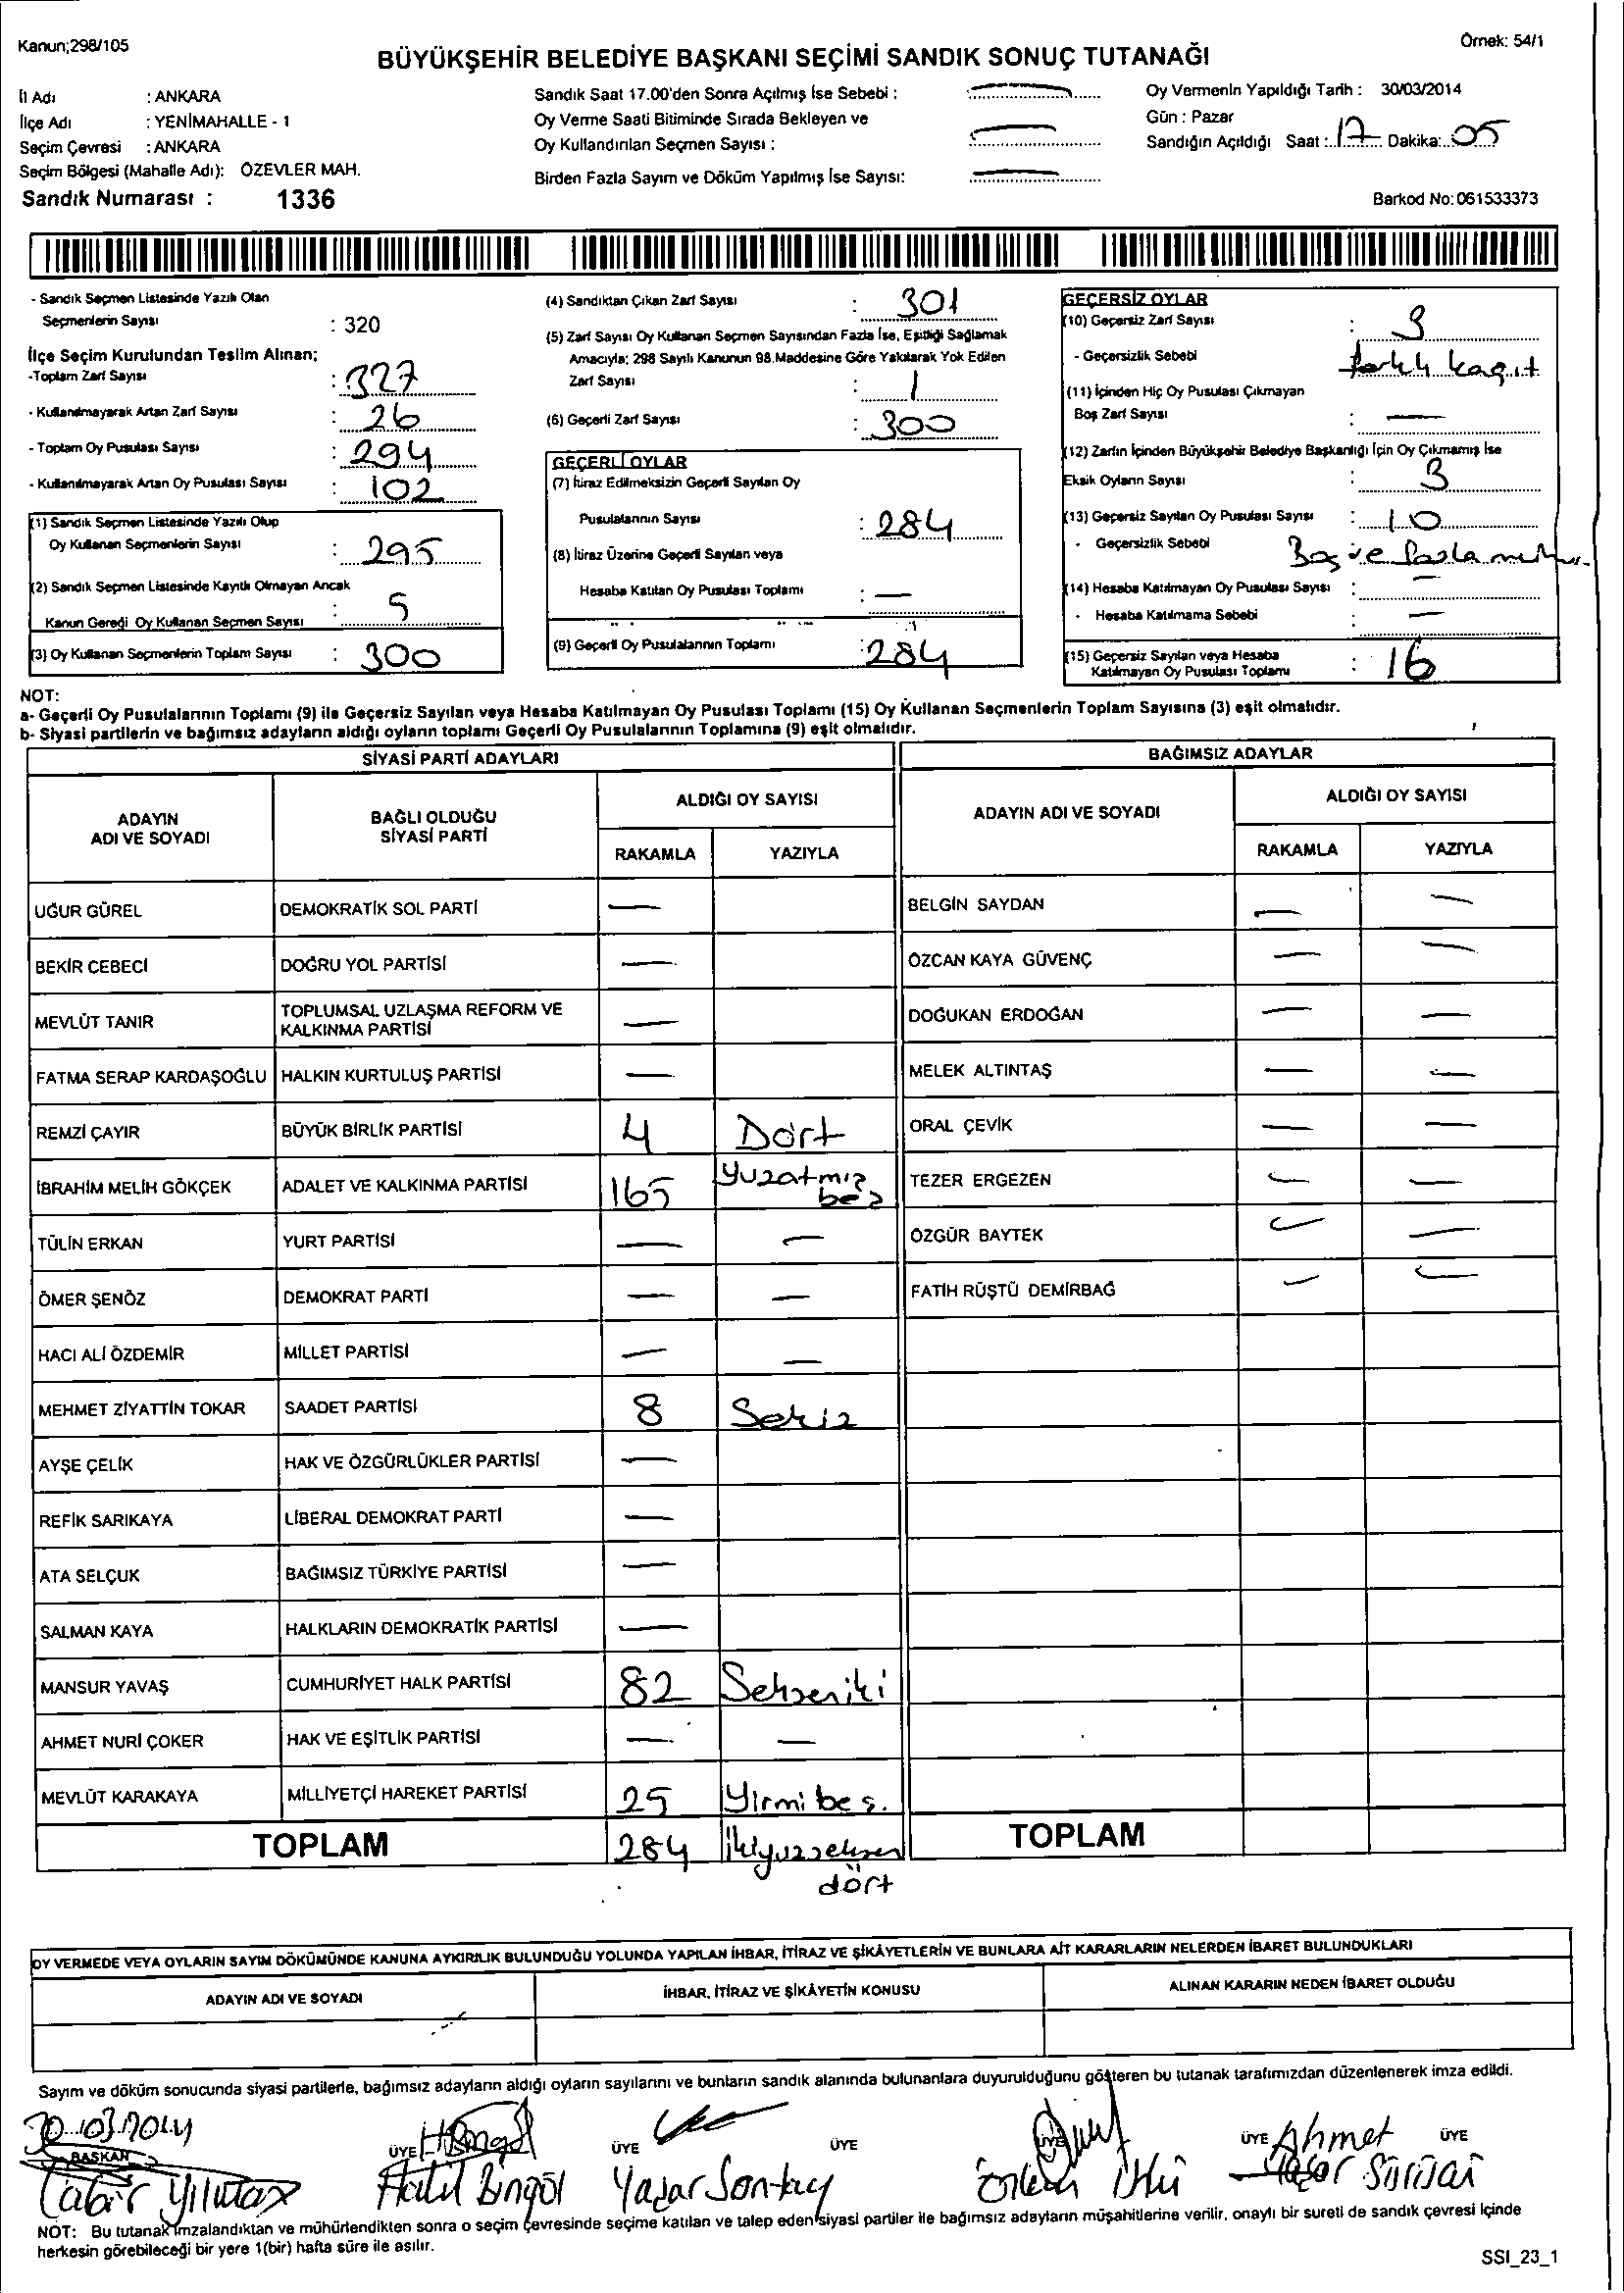 Kanun;298/105
Örnek: 54/1
BÜYÜKŞEHİR BELEDİYE BAŞKANI SEÇİMİ SANDIK SONUÇ TUTANAĞI
İl Adı : ANKARA
İlçe Adı : YENİMAHALLE - 1
Seçim Çevresi : ANKARA
Seçim Bölgesi (Mahalle Adı): ÖZEVLER MAH.
Sandık Numarası : 1336
Sandık Saat 17.00'den Sonra Açılmış İse Sebebi : —
Oy Verme Saati Bitiminde Sırada Bekleyen ve
Oy Kullandırılan Seçmen Sayısı : —
Birden Fazla Sayım ve Döküm Yapılmış İse Sayısı: —
Oy Vermenin Yapıldığı Tarih : 30/03/2014
Gün : Pazar
Sandığın Açıldığı Saat : 17 Dakika: 05
Barkod No: 061533373
- Sandık Seçmen Listesinde Yazılı Olan
Seçmenlerin Sayısı : 320
İlçe Seçim Kurulundan Teslim Alınan;
-Toplam Zarf Sayısı : 327
- Kullanılmayarak Artan Zarf Sayısı : 26
- Toplam Oy Pusulası Sayısı : 294
- Kullanılmayarak Artan Oy Pusulası Sayısı : 102
(1) Sandık Seçmen Listesinde Yazılı Olup
Oy Kullanan Seçmenlerin Sayısı : 295
(2) Sandık Seçmen Listesinde Kayıtlı Olmayan Ancak
Kanun Gereği Oy Kullanan Seçmen Sayısı : 5
(3) Oy Kullanan Seçmenlerin Toplam Sayısı : 300
(4) Sandıktan Çıkan Zarf Sayısı : 301
(5) Zarf Sayısı Oy Kullanan Seçmen Sayısından Fazla İse, Eşitliği Sağlamak
Amacıyla; 298 Sayılı Kanunun 98.Maddesine Göre Yakılarak Yok Edilen
Zarf Sayısı : 1
(6) Geçerli Zarf Sayısı : 300
GEÇERLİ OYLAR
(7) İtiraz Edilmeksizin Geçerli Sayılan Oy
Pusulalarının Sayısı : 284
(8) İtiraz Üzerine Geçerli Sayılan veya
Hesaba Katılan Oy Pusulası Toplamı : —
(9) Geçerli Oy Pusulalarının Toplamı : 284
GEÇERSİZ OYLAR
(10) Geçersiz Zarf Sayısı : 3
- Geçersizlik Sebebi farklı kagıt
(11) İçinden Hiç Oy Pusulası Çıkmayan
Boş Zarf Sayısı : —
(12) Zarfın İçinden Büyükşehir Belediye Başkanlığı İçin Oy Çıkmamış İse
Eksik Oyların Sayısı : 3
(13) Geçersiz Sayılan Oy Pusulası Sayısı : 10
- Geçersizlik Sebebi Boş ve fazla
(14) Hesaba Katılmayan Oy Pusulası Sayısı : —
- Hesaba Katılmama Sebebi : —
(15) Geçersiz Sayılan veya Hesaba
Katılmayan Oy Pusulası Toplamı : 16
NOT:
a- Geçerli Oy Pusulalarının Toplamı (9) ile Geçersiz Sayılan veya Hesaba Katılmayan Oy Pusulası Toplamı (15) Oy Kullanan Seçmenlerin Toplam Sayısına (3) eşit olmalıdır.
b- Siyasi partilerin ve bağımsız adayların aldığı oyların toplamı Geçerli Oy Pusulalarının Toplamına (9) eşit olmalıdır.
SİYASİ PARTİ ADAYLARI BAĞIMSIZ ADAYLAR
ADAYIN ADI VE SOYADI BAĞLI OLDUĞU SİYASİ PARTİ ALDIĞI OY SAYISI ADAYIN ADI VE SOYADI ALDIĞI OY SAYISI
RAKAMLA YAZIYLA RAKAMLA YAZIYLA
UĞUR GÜREL DEMOKRATİK SOL PARTİ — BELGİN SAYDAN — —
BEKİR CEBECİ DOĞRU YOL PARTİSİ — ÖZCAN KAYA GÜVENÇ — —
MEVLÜT TANIR TOPLUMSAL UZLAŞMA REFORM VE KALKINMA PARTİSİ — DOĞUKAN ERDOĞAN — —
FATMA SERAP KARDAŞOĞLU HALKIN KURTULUŞ PARTİSİ — MELEK ALTINTAŞ — —
REMZİ ÇAYIR BÜYÜK BİRLİK PARTİSİ 4 Dört ORAL ÇEVİK — —
İBRAHİM MELİH GÖKÇEK ADALET VE KALKINMA PARTİSİ 165 Yuzatmış beş TEZER ERGEZEN — —
TÜLİN ERKAN YURT PARTİSİ — — ÖZGÜR BAYTEK — —
ÖMER ŞENÖZ DEMOKRAT PARTİ — — FATİH RÜŞTÜ DEMİRBAĞ — —
HACI ALİ ÖZDEMİR MİLLET PARTİSİ — —
MEHMET ZİYATTİN TOKAR SAADET PARTİSİ 8 Sekiz
AYŞE ÇELİK HAK VE ÖZGÜRLÜKLER PARTİSİ —
REFİK SARIKAYA LİBERAL DEMOKRAT PARTİ —
ATA SELÇUK BAĞIMSIZ TÜRKİYE PARTİSİ —
SALMAN KAYA HALKLARIN DEMOKRATİK PARTİSİ —
MANSUR YAVAŞ CUMHURİYET HALK PARTİSİ 82 Sekseniki
AHMET NURİ ÇOKER HAK VE EŞİTLİK PARTİSİ — —
MEVLÜT KARAKAYA MİLLİYETÇİ HAREKET PARTİSİ 25 Yirmi beş.
TOPLAM 284 İkiyuzseksen dört TOPLAM
OY VERMEDE VEYA OYLARIN SAYIM DÖKÜMÜNDE KANUNA AYKIRILIK BULUNDUĞU YOLUNDA YAPILAN İHBAR, İTİRAZ VE ŞİKÂYETLERİN VE BUNLARA AİT KARARLARIN NELERDEN İBARET BULUNDUKLARI
ADAYIN ADI VE SOYADI İHBAR, İTİRAZ VE ŞİKÂYETİN KONUSU ALINAN KARARIN NEDEN İBARET OLDUĞU
Sayım ve döküm sonucunda siyasi partilerle, bağımsız adayların aldığı oyların sayılarını ve bunların sandık alanında bulunanlara duyurulduğunu gösteren bu tutanak tarafımızdan düzenlenerek imza edildi.
30.03.2014
BAŞKAN ÜYE ÜYE ÜYE ÜYE ÜYE Ahmet ÜYE
Halil Bingöl Yaşar
NOT: Bu tutanak imzalandıktan ve mühürlendikten sonra o seçim çevresinde seçime katılan ve talep eden siyasi partiler ile bağımsız adayların müşahitlerine verilir, onaylı bir sureti de sandık çevresi içinde
herkesin görebileceği bir yere 1(bir) hafta süre ile asılır.
SSI_23_1